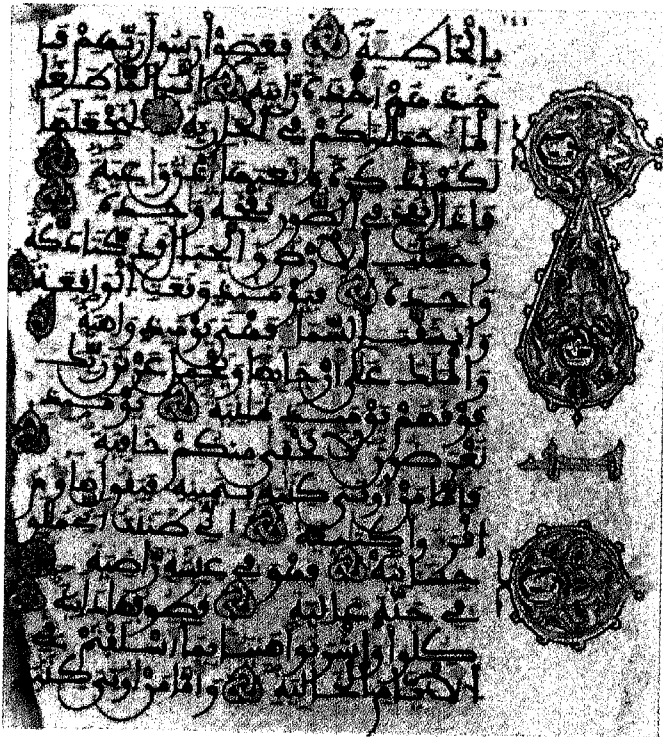 ١٤١
بالخاطية فعصوا رسول ربهم فا
خذهم اخذة رابية انا لما طغا
الما حملنكم في الجارية لنجعلها
لكم تذكرة وتعيها اذن وعية
فاذا نفخ في الصور نفخة وحدة
وحملت الارض والجبال فدكتا دكة
وحدة فيومئذ وقعت الواقعة
وانشقت السما فهي يومئذ واهية
والملك على ارجايها ويحمل عرش ربك
فوقهم يومئذ ثمنية يومئذ
تعرضون لا تخفى منكم خافية
فاما من اوتي كتبه بيمينه فيقول هاوم
اقروا كتبيه اني ظننت اني ملق
حسابيه فهو في عيشة راضية
في جنة عالية قطوفها دانية
كلوا واشربوا هنيا بما اسلفتم في
الايام الخالية واما من اوتي كتبه